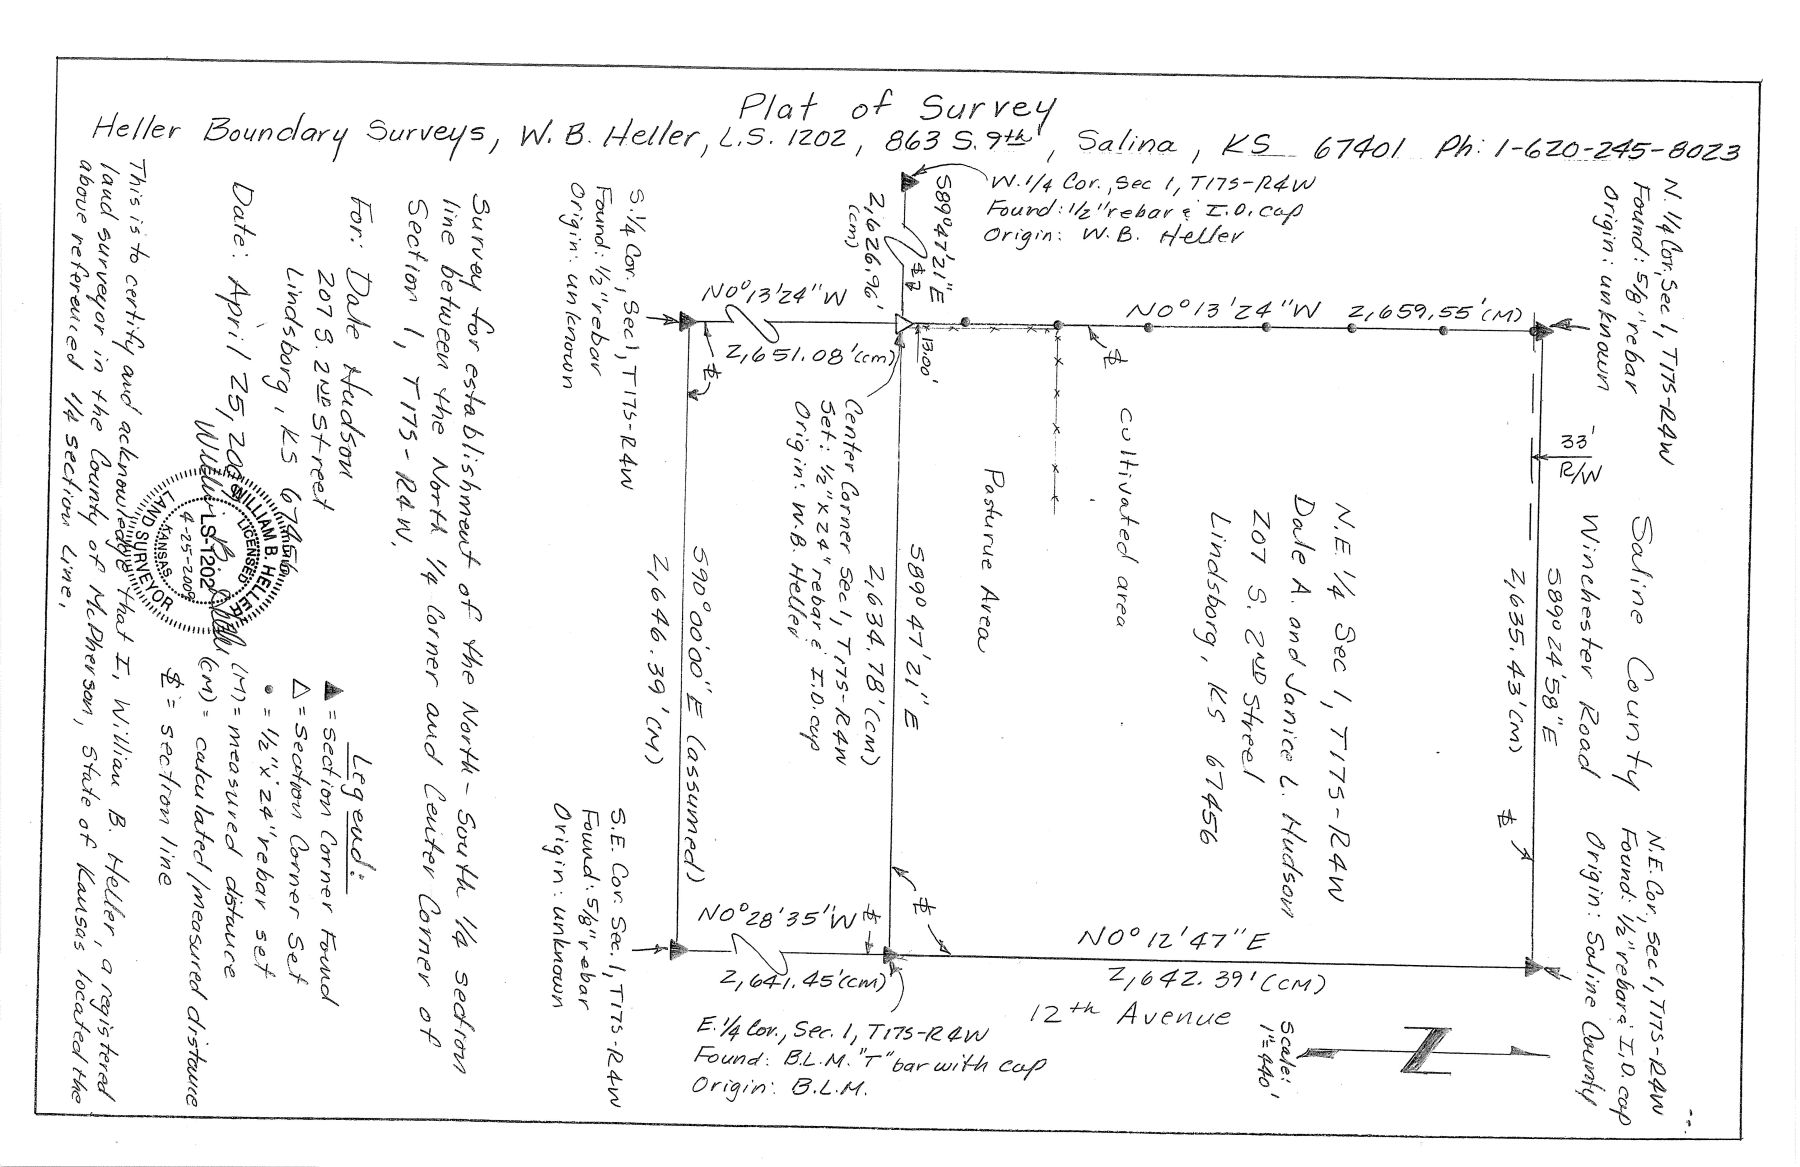 Plat of Survey
Heller Boundary Surveys, W. B. Heller, L.S. 1202, 863 S. 9th, Salina, KS 67401 Ph: 1-620-245-8023
W. 1/4 Cor., Sec 1, T17S-R4W
Found: 1/2" rebar & I.D. cap
Origin: W. B. Heller
S89°47'21"E
2,626.96'
(cm)
N. 1/4 Cor., Sec 1, T17S-R4W
Found: 5/8" rebar
Origin: unknown
S. 1/4 Cor., Sec 1, T17S-R4W
Found: 1/2" rebar
Origin: unknown
N0°13'24"W
2,651.08' (cm)
N0°13'24"W 2,659.55' (M)
13.00'
33'
R/W
Center Corner Sec 1, T17S-R4W
Set: 1/2" x 24" rebar & I.D. cap
Origin: W.B. Heller
Pasturue Area
cultivated area
N.E. 1/4 Sec 1, T17S-R4W
Dale A. and Janice L. Hudson
207 S. 2ND Street
Lindsborg, KS 67456
Saline County
Winchester Road
S89°24'58"E
2,635.43' (M)
S89°47'21"E
2,634.78' (cm)
S90°00'00"E (assumed)
2,646.39' (M)
N.E. Cor, Sec 1, T17S-R4W
Found: 1/2" rebar & I.D. cap
Origin: Saline County
S.E. Cor. Sec. 1, T17S-R4W
Found: 5/8" rebar
Origin: unknown
N0°28'35"W
2,641.45' (cm)
N0°12'47"E
2,642.39' (cm)
12th Avenue
E. 1/4 Cor., Sec. 1, T17S-R4W
Found: B.L.M. "T" bar with cap
Origin: B.L.M.
Scale:
1"=440'
Survey for establishment of the North-South 1/4 section
line between the North 1/4 Corner and Center Corner of
Section 1, T17S-R4W.
For: Dale Hudson
207 S. 2ND Street
Lindsborg, KS 67456
Date: April 25, 2009
WILLIAM B. HELLER
LICENSED
LS-1202
4-25-2009
KANSAS
LAND SURVEYOR
Legend:
▲ = section Corner Found
△ = section Corner Set
• = 1/2" x 24" rebar set
(M) = measured distance
(cm) = calculated/measured distance
= section line
This is to certify and acknowledge that I, William B. Heller, a registered
land surveyor in the County of McPherson, State of Kansas located the
above referenced 1/4 section line.